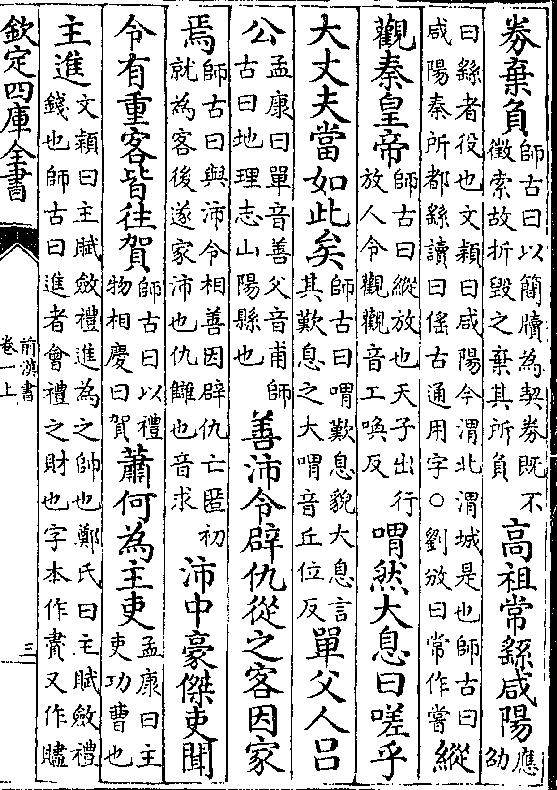 券棄負師古曰以簡牘為契券既不徵索故折毀之棄其所負高祖常繇咸陽應劭
曰繇者役也文穎曰咸陽今渭北渭城是也師古曰咸陽秦所都繇讀曰傜古通用字○劉攽曰常作嘗縱
觀秦皇帝師古曰縱放也天子出行放人令觀觀音工喚反喟然大息曰嗟乎
大丈夫當如此矣師古曰喟歎息貌大息言其歎息之大喟音丘位反單父人呂
公孟康曰單音善父音甫師古曰地理志山陽縣也善沛令辟仇從之客因家
焉師古曰與沛令相善因辟仇亡匿初就為客後遂家沛也仇讎也音求沛中豪傑吏聞
令有重客皆往賀師古曰以禮物相慶曰賀蕭何為主吏孟康曰主吏功曹也
主進文穎曰主賦斂禮進為之帥也鄭氏曰主賦斂禮錢也師古曰進者會禮之財也字本作賮又作贐
欽定四庫全書
前漢書
卷一上
三